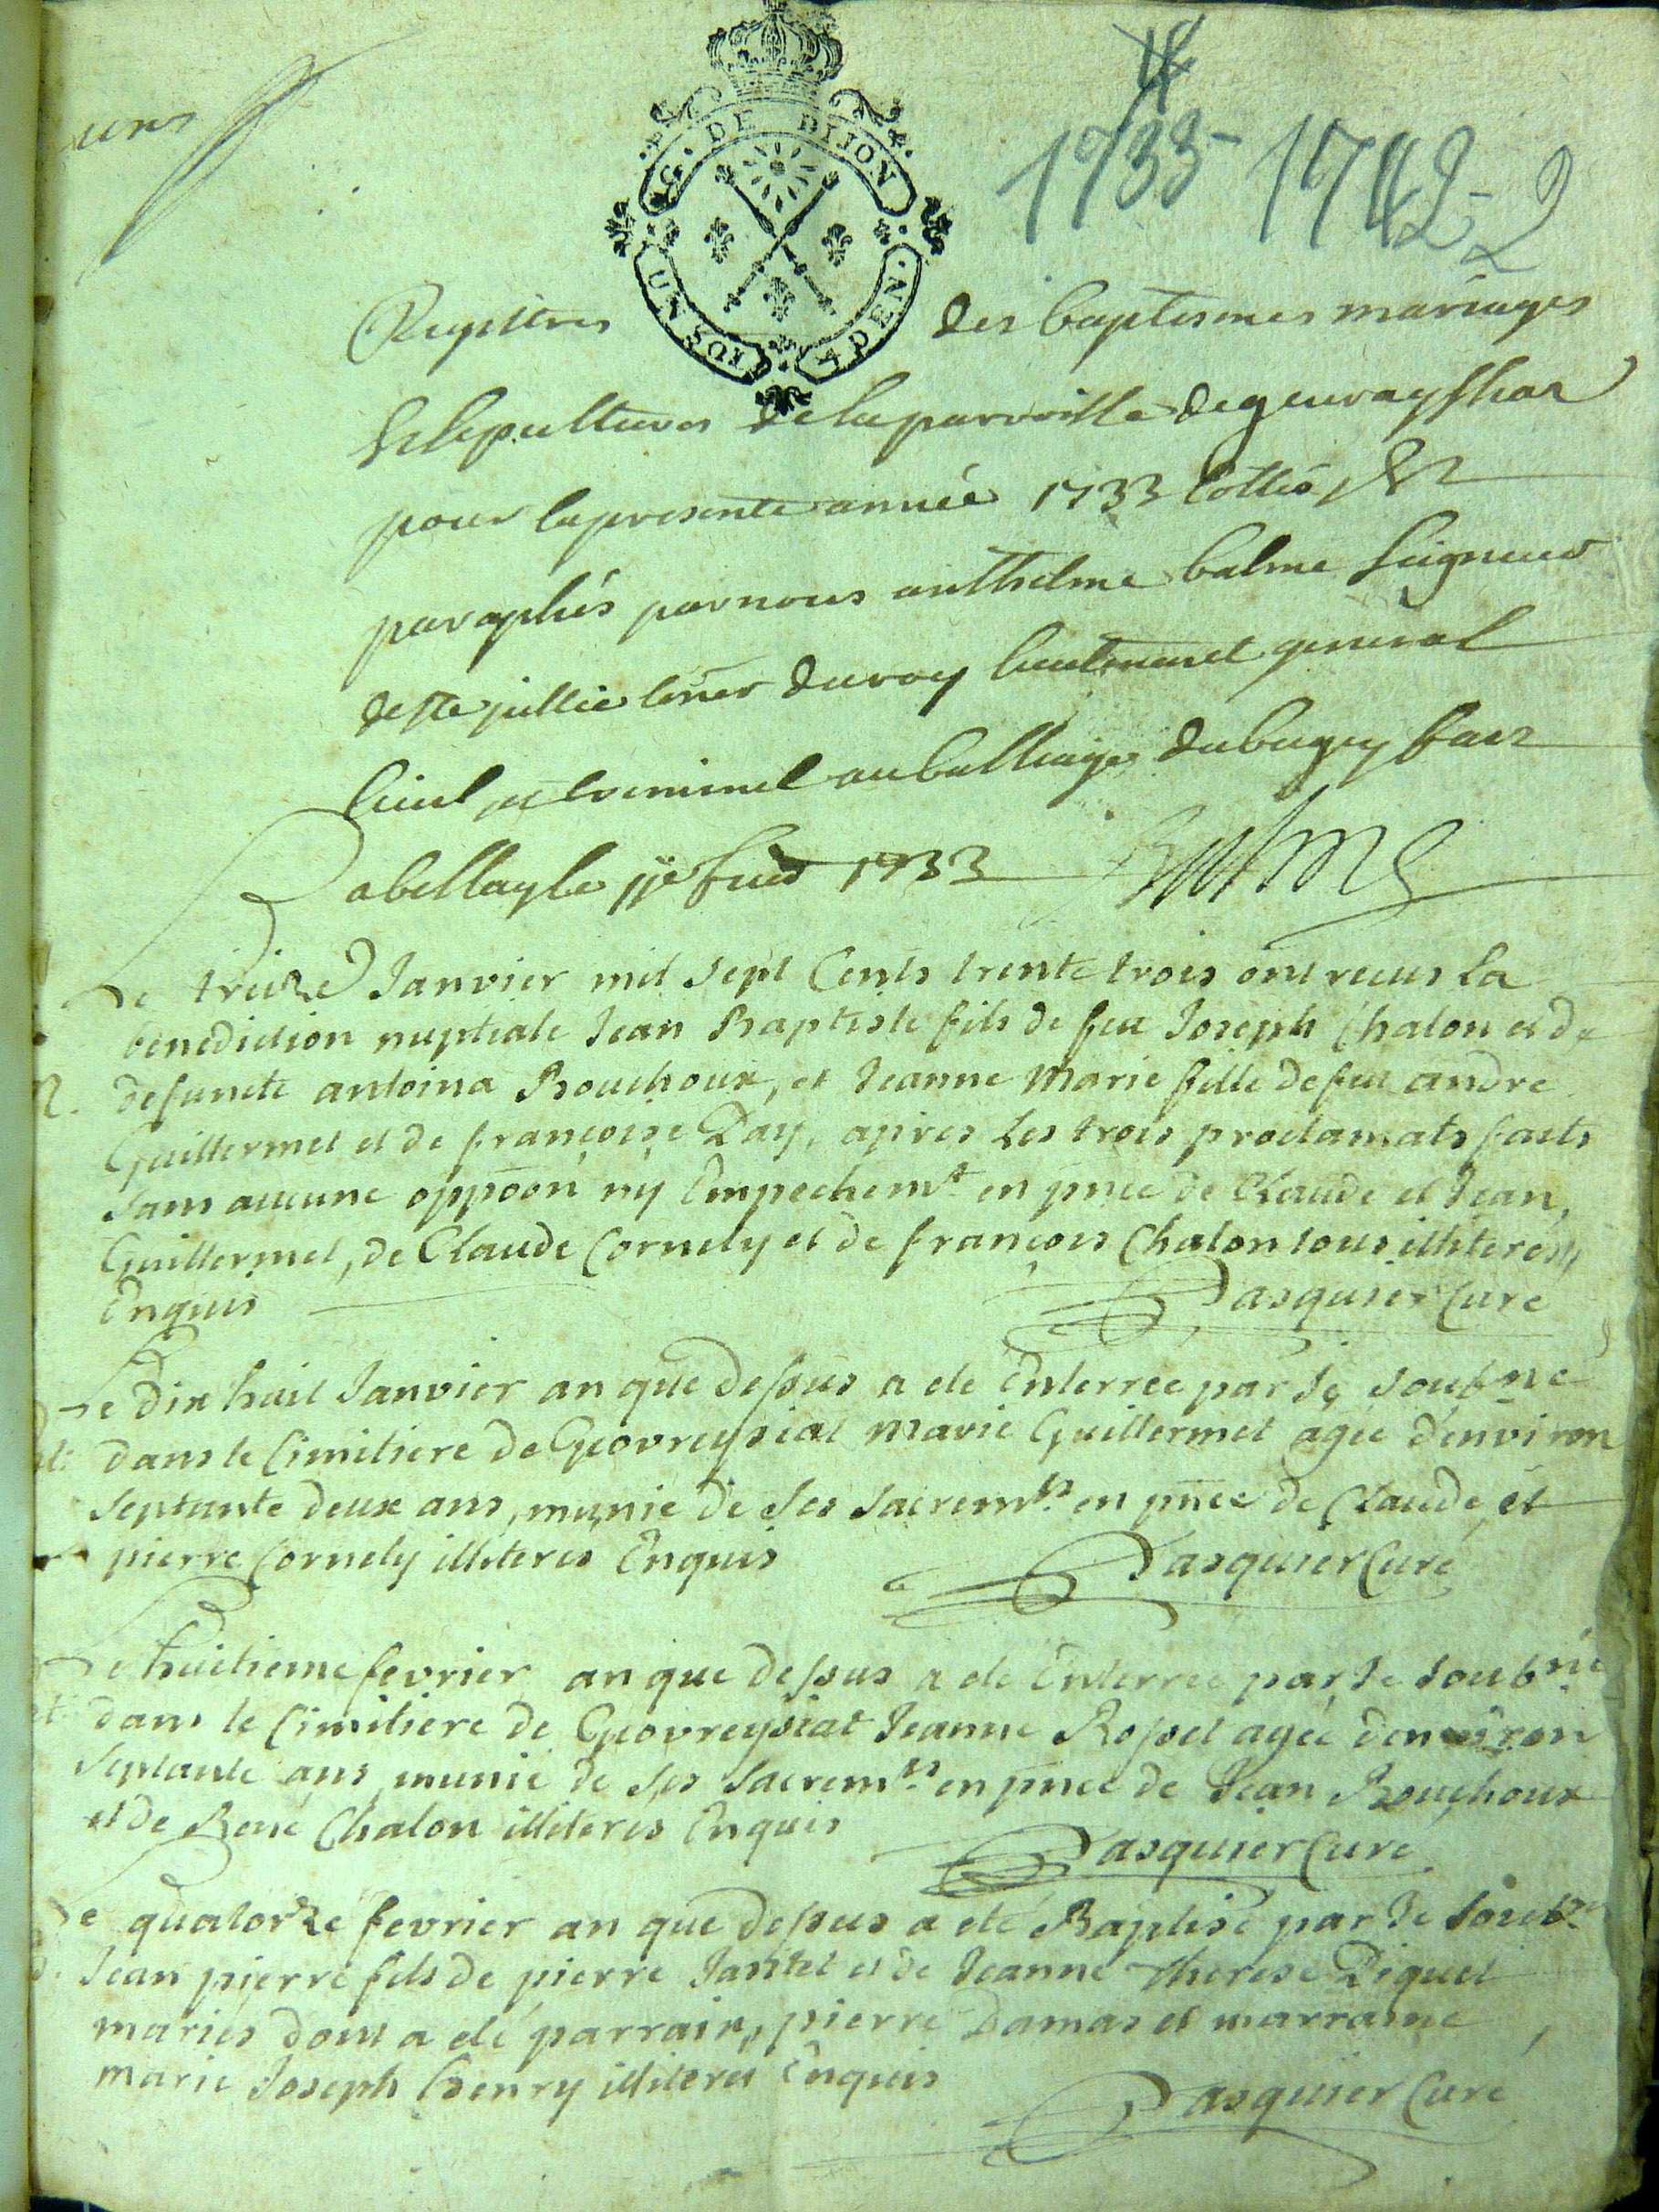 1733-1742-2
G. DE DIJON
UN SOL 4 DEN.
Registres des baptesmes mariages
& sepultures de la parroisse de geuvreyssiaz
pour la presente année 1733 Cottés &
paraphés par nous anthelme balme seigneur
de Ste jullie Coner du roy lieutenant general
Civil et Criminel au balliage du bugey fait
a bellay le 1733 Balme
Le treize Janvier mil sept Cents trente trois ont receus La
benediction nuptiale Jean Baptiste fils de feu Joseph Chalon et de
defuncte antoina Bouchoux, et Jeanne Marie fille de feu andre
Guillermet et de françoise Day, apres Les trois proclamats faits
sans aucune oppoõn ny Empechemt. en pnce de Claude et Jean,
Guillermet, de Claude Cornely et de françois Chalon tous illiteres,
Enquis Pasquier Curé
Le dix huit Janvier an que dessus a eté Enterrée par Je soubné
dans le Cimitiere de Geovreysiat Marie Guillermet agée d'environ
septante deux ans, munie de ses sacremts. en pnce de Claude et
pierre Cornely illiteres Enquis Pasquier Curé
Le huitieme fevrier an que dessus a eté Enterrée par Je soubné
dans le Cimitiere de Geovreysiat Jeanne Rosset agée d'environ
septante ans munie de ses sacremts. en pnce de Jean Bouchoux
et de René Chalon illiteres Enquis Pasquier Curé
Le quatorze fevrier an que dessus a eté Baptisé par Je soubné
Jean pierre fils de pierre Jantet et de Jeanne Therese Diguet
mariés dont a eté parrain, pierre Damas et marraine
marie Joseph henry illiteres Enquis Pasquier Curé